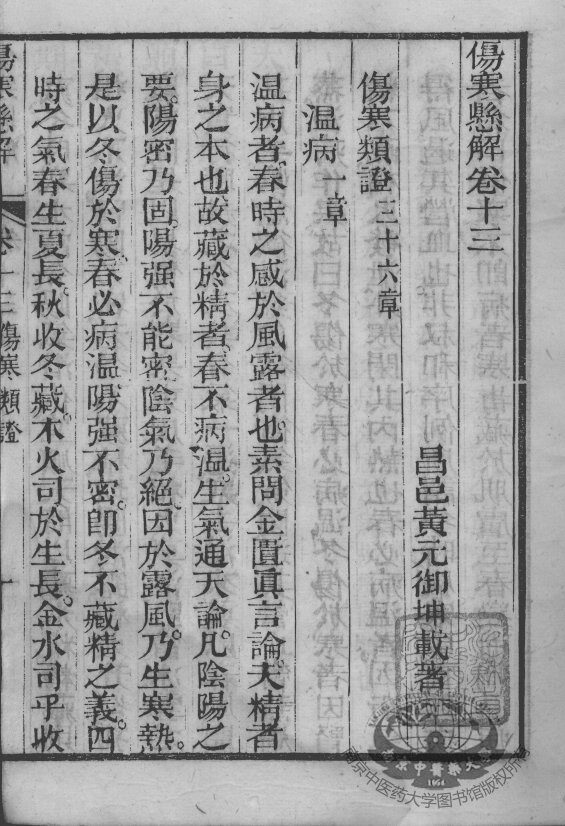 傷寒懸解卷十三
昌邑黃元御坤載著
傷寒類證三十六章
溫病一章
溫病者。春時之感於風露者也。素問金匱眞言論。夫精者
身之本也。故藏於精者。春不病溫。生氣通天論。凡陰陽之
要。陽密乃固。陽强不能密。陰氣乃絕。因於露風。乃生寒熱。
是以冬傷於寒。春必病溫。陽强不密。卽冬不藏精之義。四
時之氣。春生夏長。秋收冬藏。木火司於生長。金水司乎收
傷寒懸解 卷十三 傷寒類證
南京中医药大学图书馆版权所有
1954